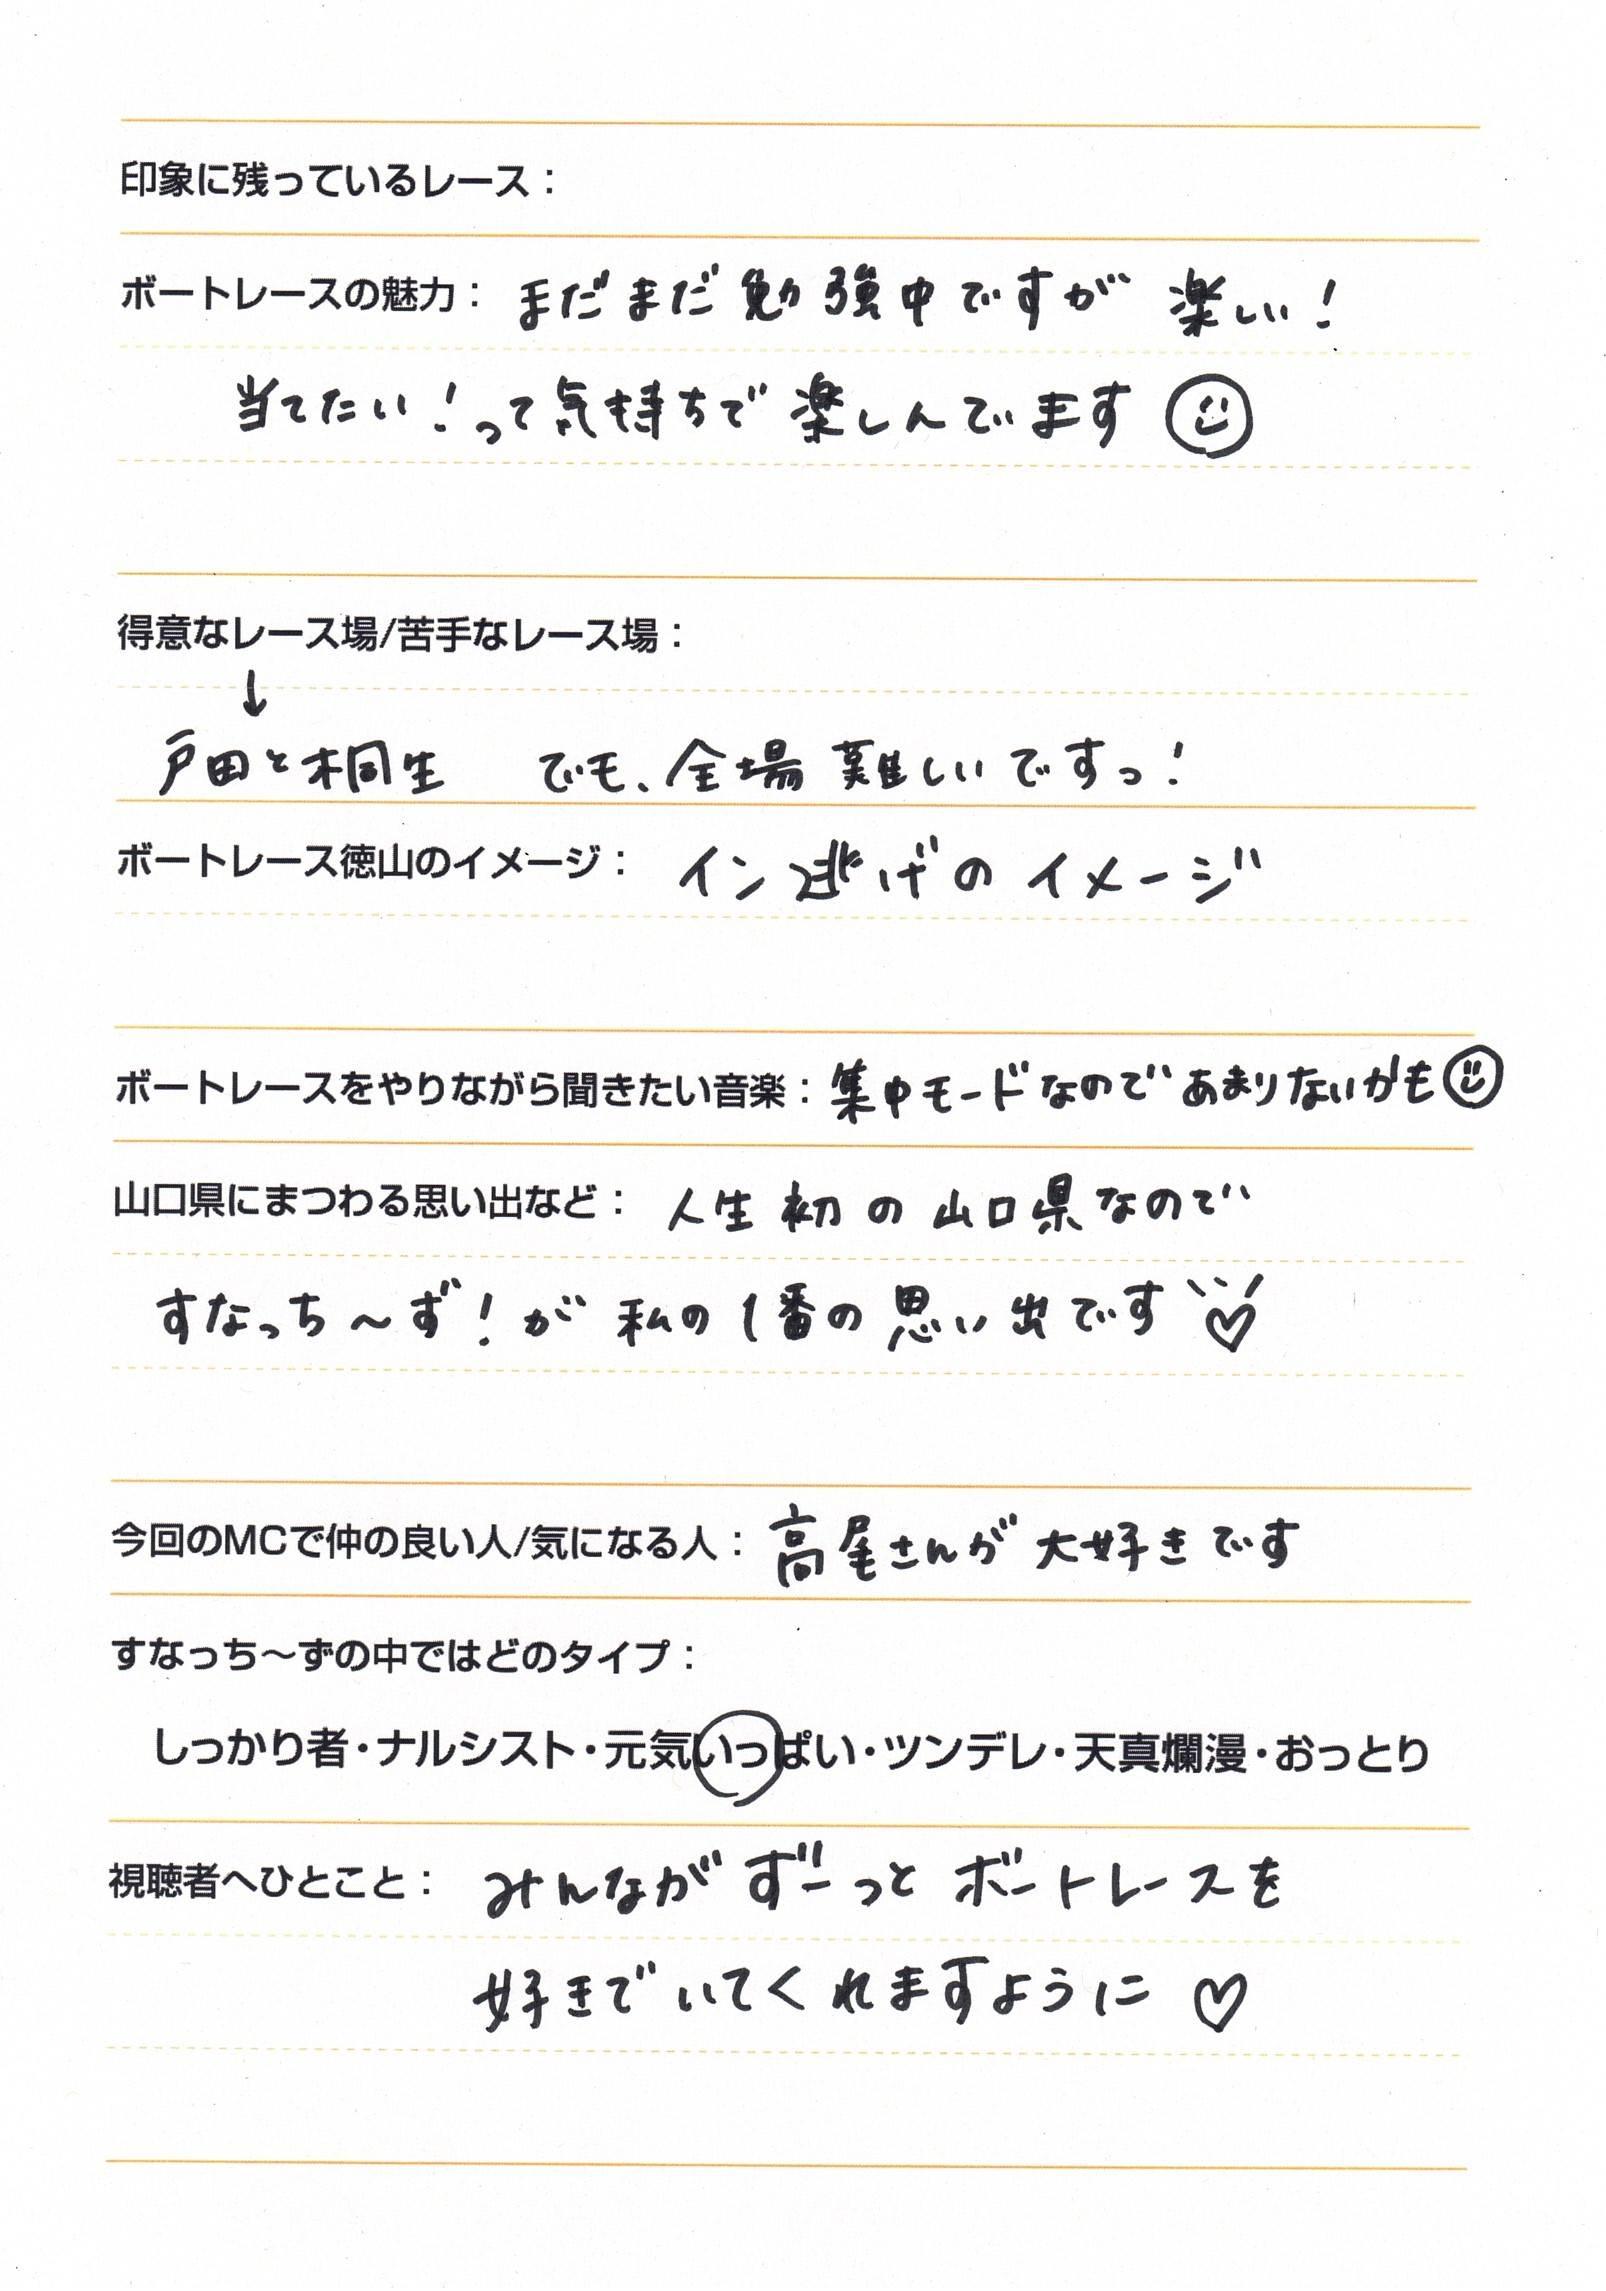 印象に残っているレース：
ボートレースの魅力： まだまだ勉強中ですが 楽しい！
当てたい！って気持ちで楽しんでいます
得意なレース場/苦手なレース場：
↓
戸田と桐生 でも、全場難しいですっ！
ボートレース徳山のイメージ： イン逃げのイメージ
ボートレースをやりながら聞きたい音楽： 集中モードなのであまりないかも
山口県にまつわる思い出など： 人生初の山口県なので
すなっち〜ず！が 私の1番の思い出です♡
今回のMCで仲の良い人/気になる人： 高尾さんが大好きです
すなっち〜ずの中ではどのタイプ：
しっかり者・ナルシスト・元気いっぱい・ツンデレ・天真爛漫・おっとり
視聴者へひとこと： みんながずーっとボートレースを
好きでいてくれますように♡